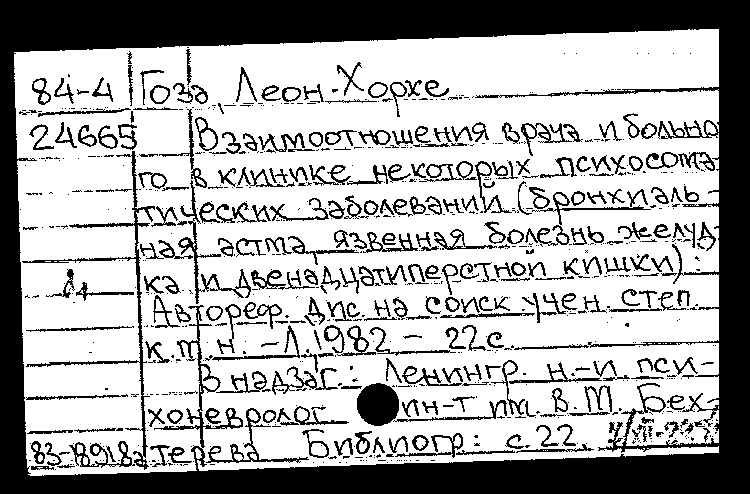 84-4 Гоза, Леон-Хорхе
24665 Взаимоотношения врача и больно-
го в клинике некоторых психосома-
тических заболеваний (бронхиаль-
ная астма, язвенная болезнь желуд-
ка и двенадцатиперстной кишки):
Автореф. дис. на соиск. учен. степ.
к.м.н. - Л., 1982 - 22 с.
В надзаг.: Ленингр. н.-и. пси-
хоневролог. ин-т им. В.М. Бех-
83-18918а терева Библиогр.: с.22.